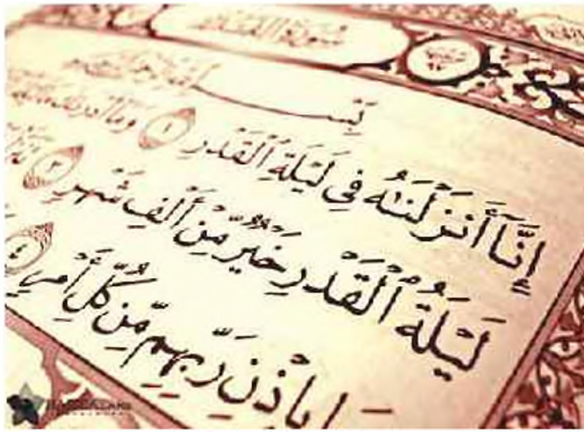 سورة القدر
بِسْمِ
إِنَّآ أَنزَلْنَٰهُ فِى لَيْلَةِ ٱلْقَدْرِ ١ وَمَآ أَدْرَىٰكَ
لَيْلَةُ ٱلْقَدْرِ خَيْرٌ مِّنْ أَلْفِ شَهْرٍ ٣
بِإِذْنِ رَبِّهِم مِّن كُلِّ أَمْرٍ ٤